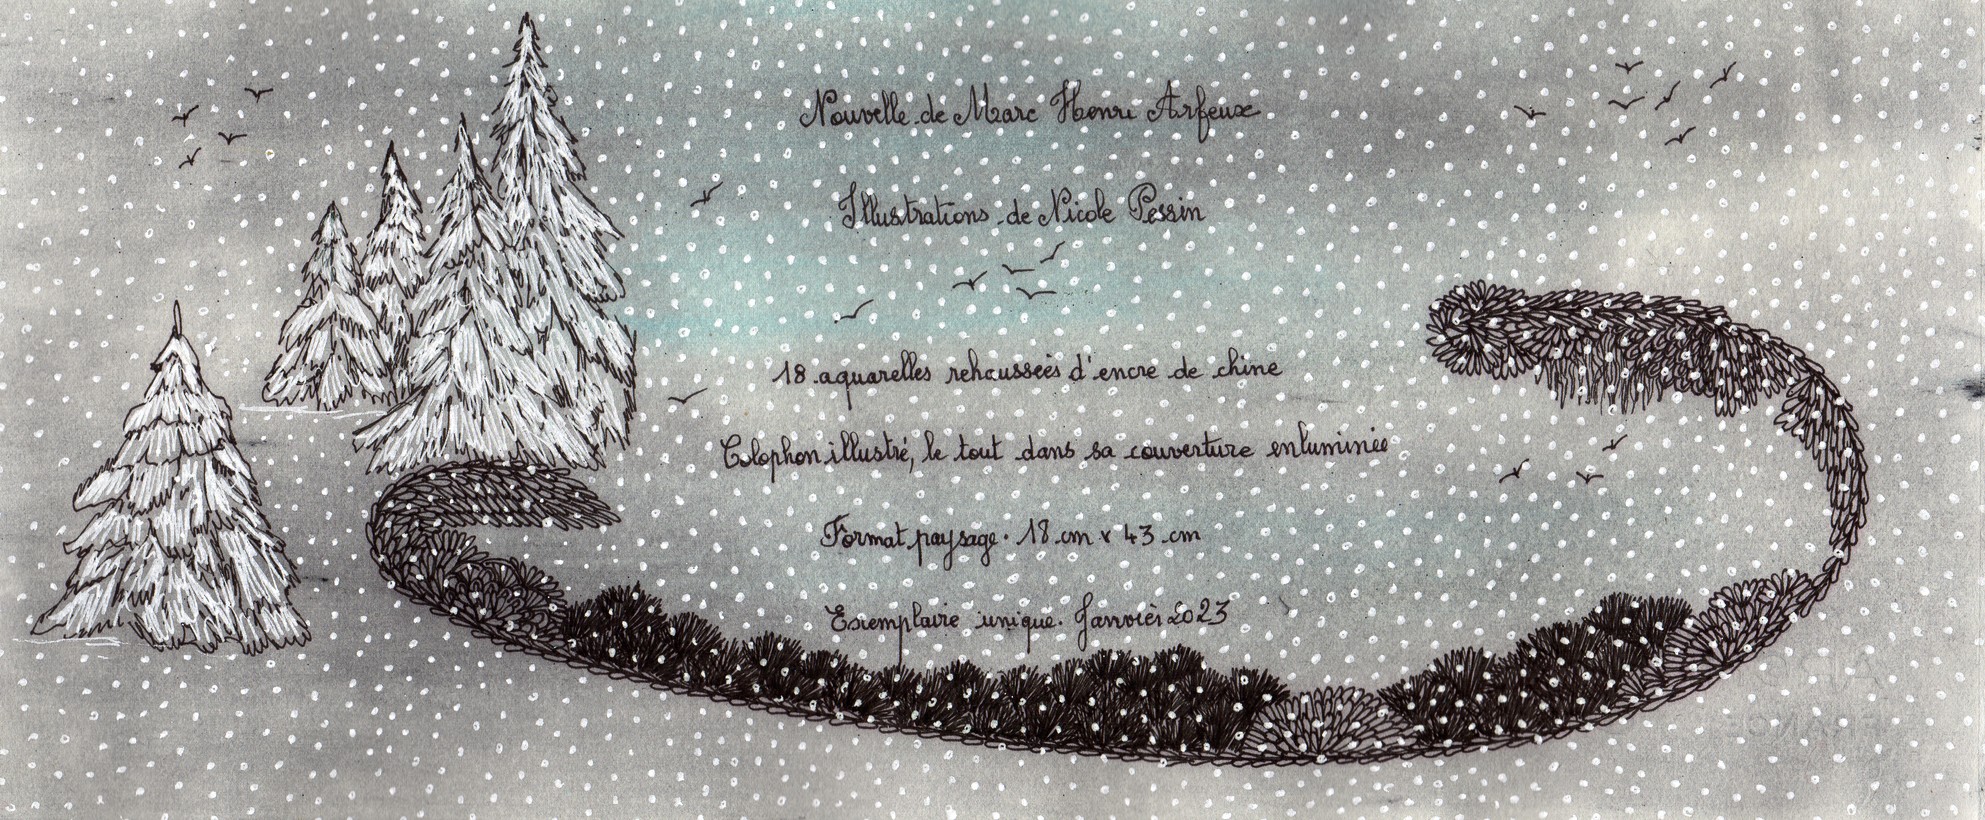 Nouvelle de Marc Henri Arfeux
Illustrations de Nicole Pessin
18 aquarelles rehaussées d'encre de chine
Colophon illustré, le tout dans sa couverture enluminée
Format paysage. 18 cm x 43 cm
Exemplaire unique. Janvier 2023
FRANCE